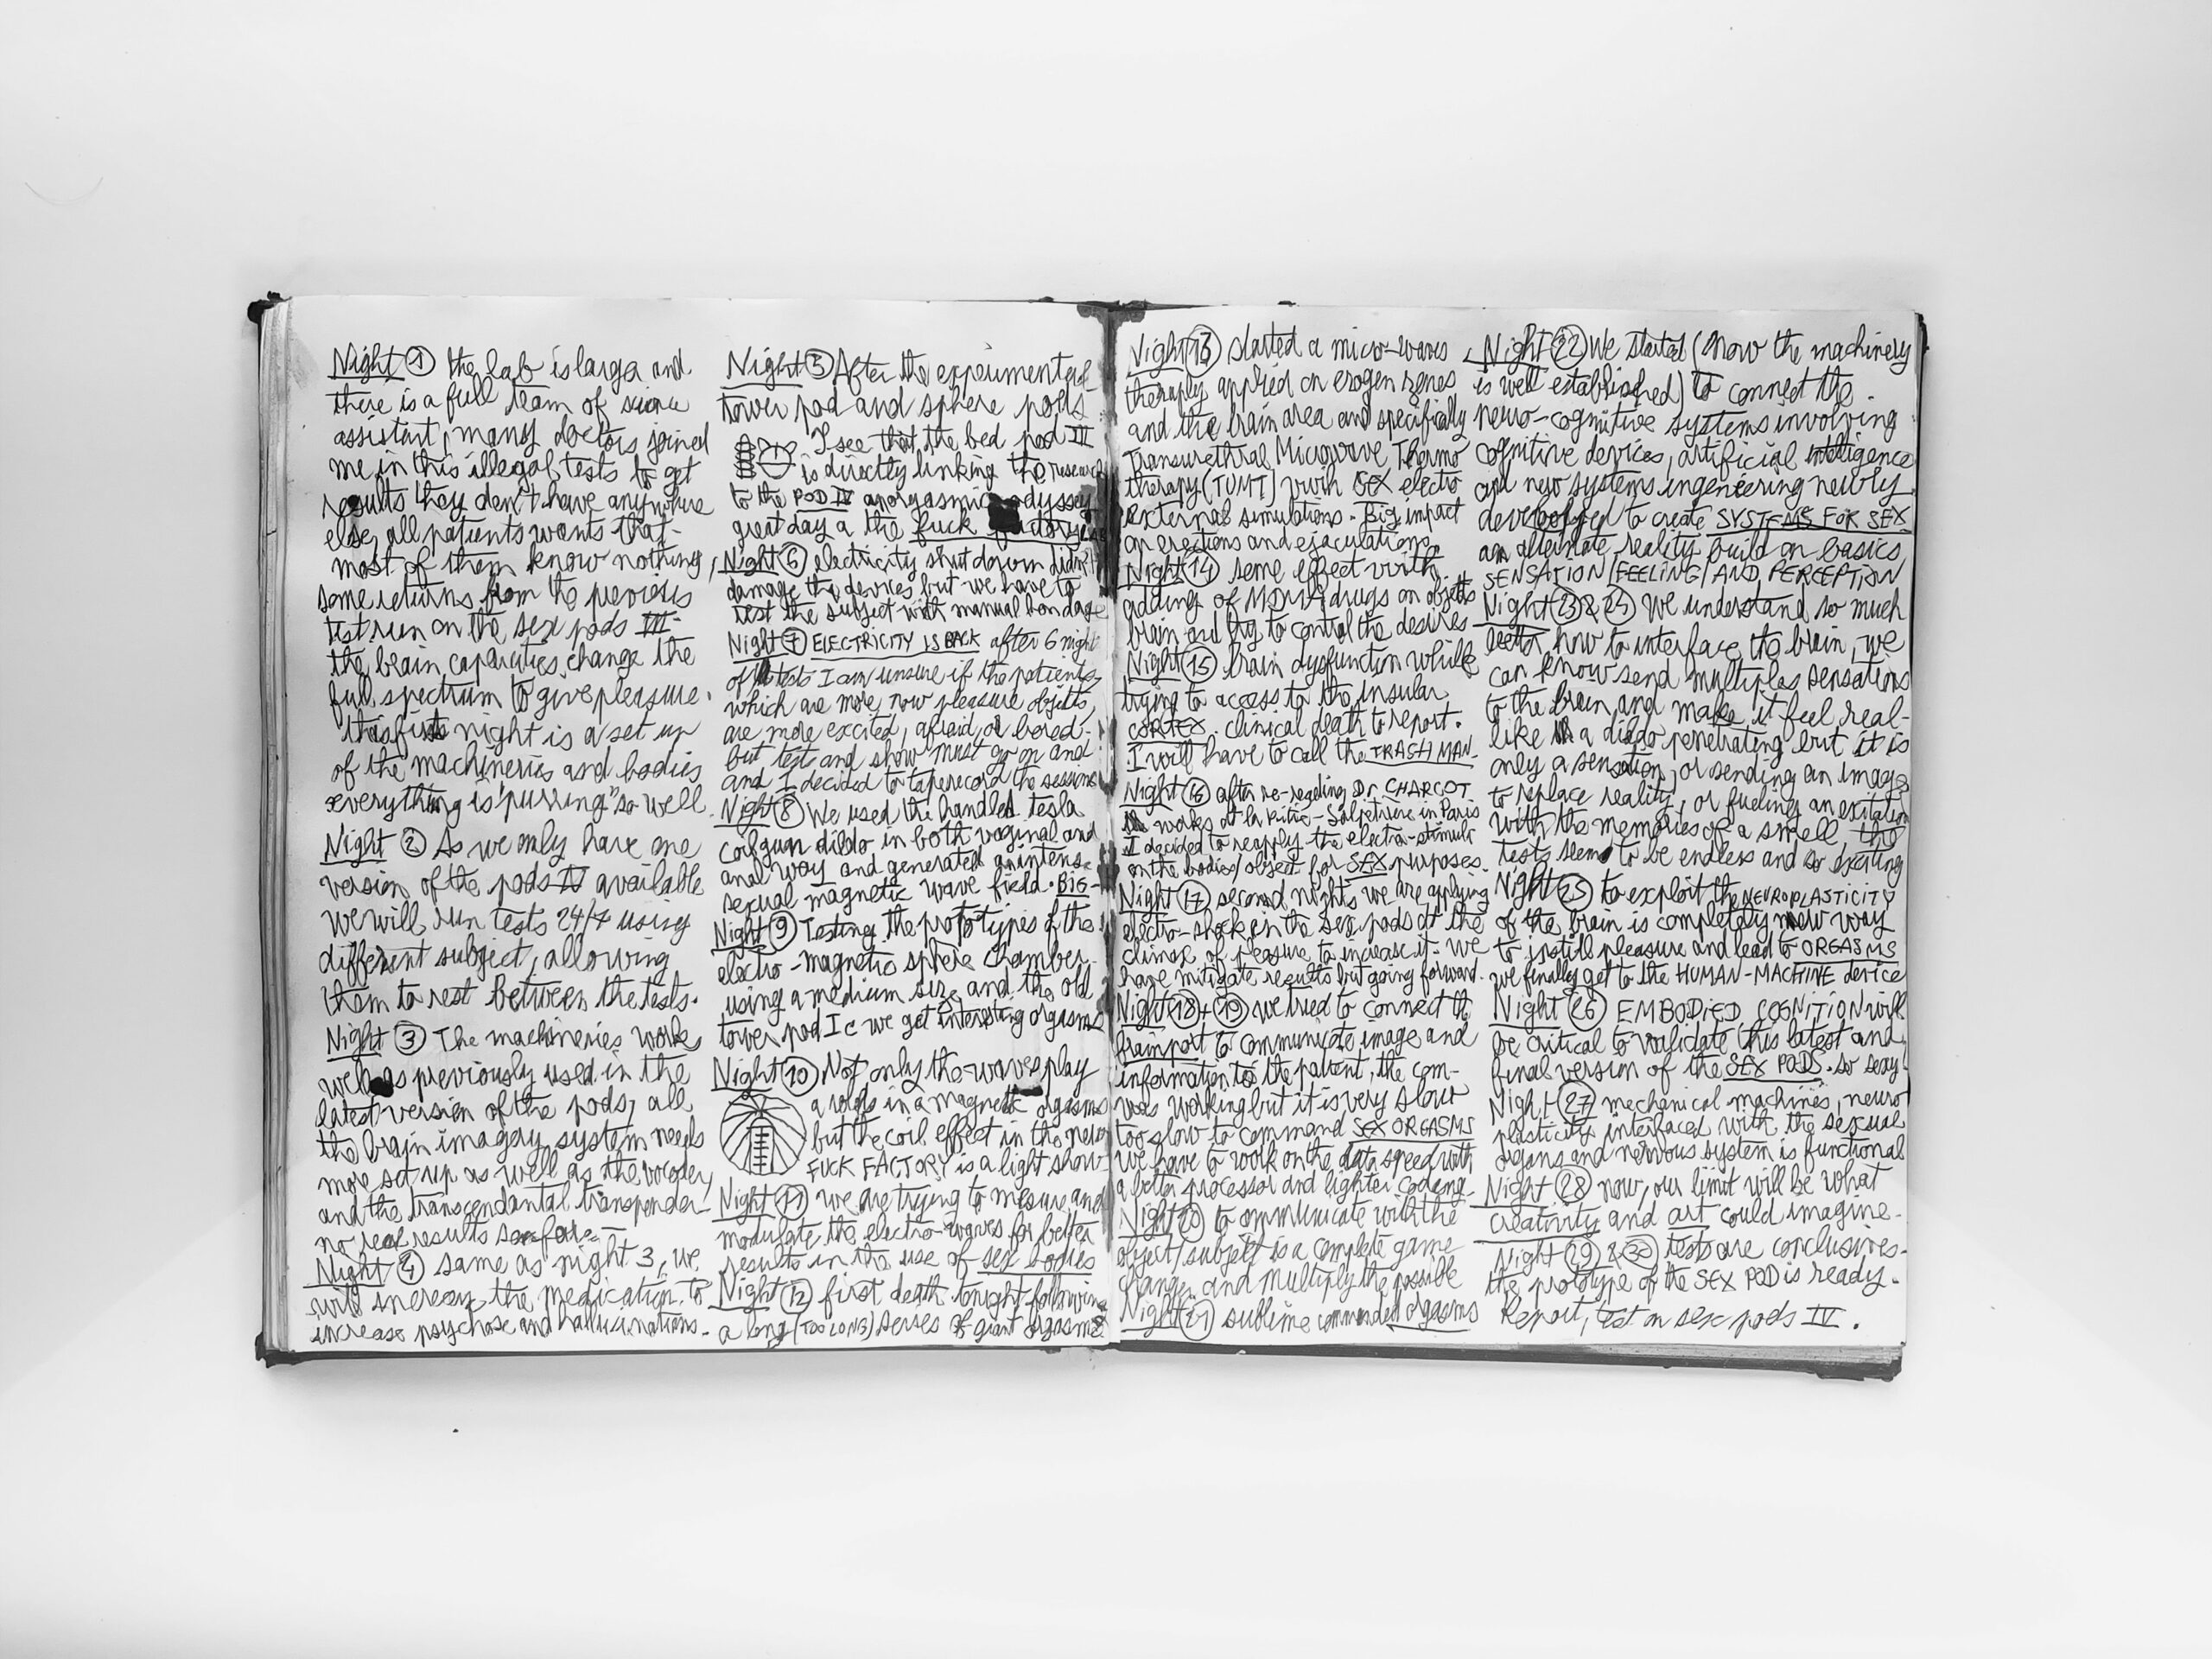 Night ① the lab is large and
there is a full team of science
assistant, many doctors joined
me in this illegal tests to get
results they don't have anywhere
else, all patients wants that-
most of them know nothing,
some returns from the previous
test run on the sex pods III-
the brain capacities change the
full spectrum to give pleasure.
this first night is a set up
of the machineries and bodies
everything is "purring" so well.
Night ② As we only have one
version of the pods IV available
we will run tests 24/7 using
different subject, allowing
them to rest between the tests.
Night ③ The machineries work
well as previously used in the
latest version of the pods, all
the brain imagery system needs
more set up as well as the vocoder
and the transcendantal transponder-
no real results so far-
Night ④ same as night 3, we
will increase the medication to
increase psychose and hallucinations.
Night ⑤ After the experimental
tower pod and sphere pods
I see that the bed pod III
is directly linking the research
to the POD IV anorgasmic odyssey
great day a the fuck factory LAB
Night ⑥ electricity shut down didn't
damage the devices but we have to
test the subject with manual bondage
Night ⑦ ELECTRICITY IS BACK after 6 night
of tests I am unsure if the patients,
which are more now pleasure objects,
are more excited, afraid, or bored-
but test and show must go on and
and I decided to taperecord the sessions
Night ⑧ We used the handled tesla
coilgun dildo in both vaginal and
anal way and generated an intense
sexual magnetic wave field. BIG-
Night ⑨ Testing the prototypes of the
electro-magnetic sphere chamber.
using a medium size and the old
tower pod I c we get interesting orgasms
Night ⑩ Not only the waves play
a role in a magnetic orgasms
but the coil effect in the new
FUCK FACTORY is a light show-
Night ⑪ we are trying to measure and
modulate the electro-waves for better
results in the use of sex bodies
Night ⑫ first death tonight following
a long (TOO LONG) series of giant orgasms
Night ⑬ started a micro-waves
therapy applied on erogen zones
and the brain area and specifically
Transurethral Microwave Thermo
therapy (TUMT) with SEX electro
external simulations. Big impact
on erections and ejaculations.
Night ⑭ some effect with
adding of drugs on objects
brain and try to control the desires
Night ⑮ brain dysfunction while
trying to access to the insular
CORTEX. clinical death to report.
I will have to call the TRASH MAN.
Night ⑯ after re-reading Dr CHARCOT
works at la Pitié-Salpêtrière in Paris
I decided to reapply the electro-stimuli
on the bodies/object for SEX purposes.
Night ⑰ second nights we are applying
electro-shock in the sex pods at the
climax of pleasure to increase it. we
have mitigate results but going forward.
Night ⑱+⑲ we tried to connect the
brainport to communicate image and
information to the patient, the com-
was working but it is very slow
too slow to command SEX ORGASMS
We have to work on the data speed with
a better processor and lighter coding-
Night ⑳ to communicate with the
object/subject is a complete game
changer and multiply the possible
Night ㉑ sublime commanded orgasms
Night ㉒ We started (now the machinery
is well established) to connect the
neuro-cognitive systems involving
cognitive devices, artificial intelligence
and new systems ingeneering newly
developped to create SYSTEMS FOR SEX
an alternate reality build on basics
SENSATION/FEELING/AND PERCEPTION
Night ㉓&㉔ We understand so much
better how to interface the brain, we
can know send multiples sensations
to the brain and make it feel real-
like a dildo penetrating but it is
only a sensation, or sending an image
to replace reality, or fueling an exitation
with the memories of a smell, the
tests seems to be endless and so exciting
Night ㉕ to exploit the NEUROPLASTICITY
of the brain is completely new way
to instill pleasure and lead to ORGASMS
we finally get to the HUMAN-MACHINE device
Night ㉖ EMBODIED COGNITION will
be critical to validate this latest and
final version of the SEX PODS. so sexy
Night ㉗ mechanical machines, neuro
plasticity interfaced with the sexual
organs and nervous system is functional
Night ㉘ now, our limit will be what
creativity and art could imagine-
Night ㉙&㉚ tests are conclusives-
the prototype of the SEX POD is ready.
Report, test on sex pods IV.